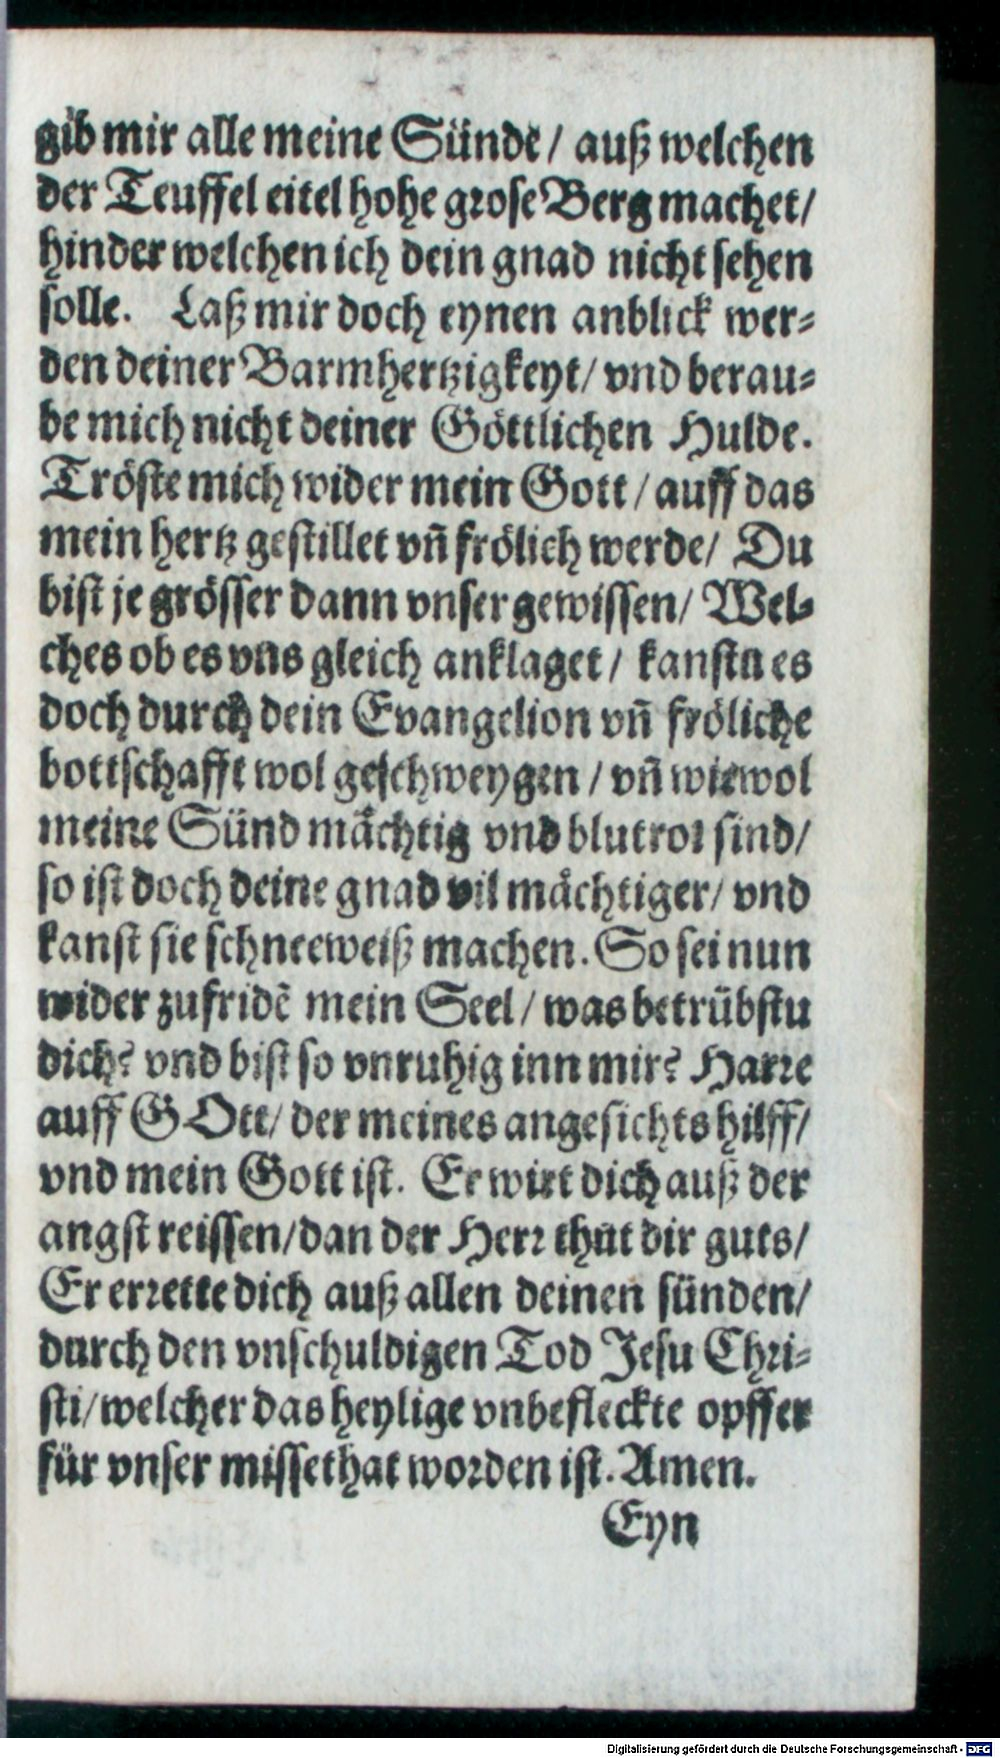 gib mir alle meine Sünde / auß welchen
der Teuffel eitel hohe grose Berg machet/
hinder welchen ich dein gnad nicht sehen
solle. Laß mir doch eynen anblick wer-
den deiner Barmhertzigkeyt/ vnd berau-
be mich nicht deiner Göttlichen Hulde.
Tröste mich wider mein Gott / auff das
mein hertz gestillet vñ frölich werde/ Du
bist je grösser dann vnser gewissen/ Wel-
ches ob es vns gleich anklaget / kanstu es
doch durch dein Evangelion vñ fröliche
bottschafft wol geschweygen / vñ wiewol
meine Sünd mächtig vnd blutrot sind/
so ist doch deine gnad vil mächtiger/ vnd
kanst sie schneeweiß machen. So sei nun
wider zufridẽ mein Seel / was betrübstu
dich? vnd bist so vnruhig inn mir? Harre
auff GOtt/ der meines angesichts hilff/
vnd mein Gott ist. Er wirt dich auß der
angst reissen/dan der Herr thut dir guts/
Er errette dich auß allen deinen sünden/
durch den vnschuldigen Tod Jesu Chri-
sti/welcher das heylige vnbefleckte opffer
für vnser missethat worden ist. Amen.
Eyn
Digitalisierung gefördert durch die Deutsche Forschungsgemeinschaft - DFG